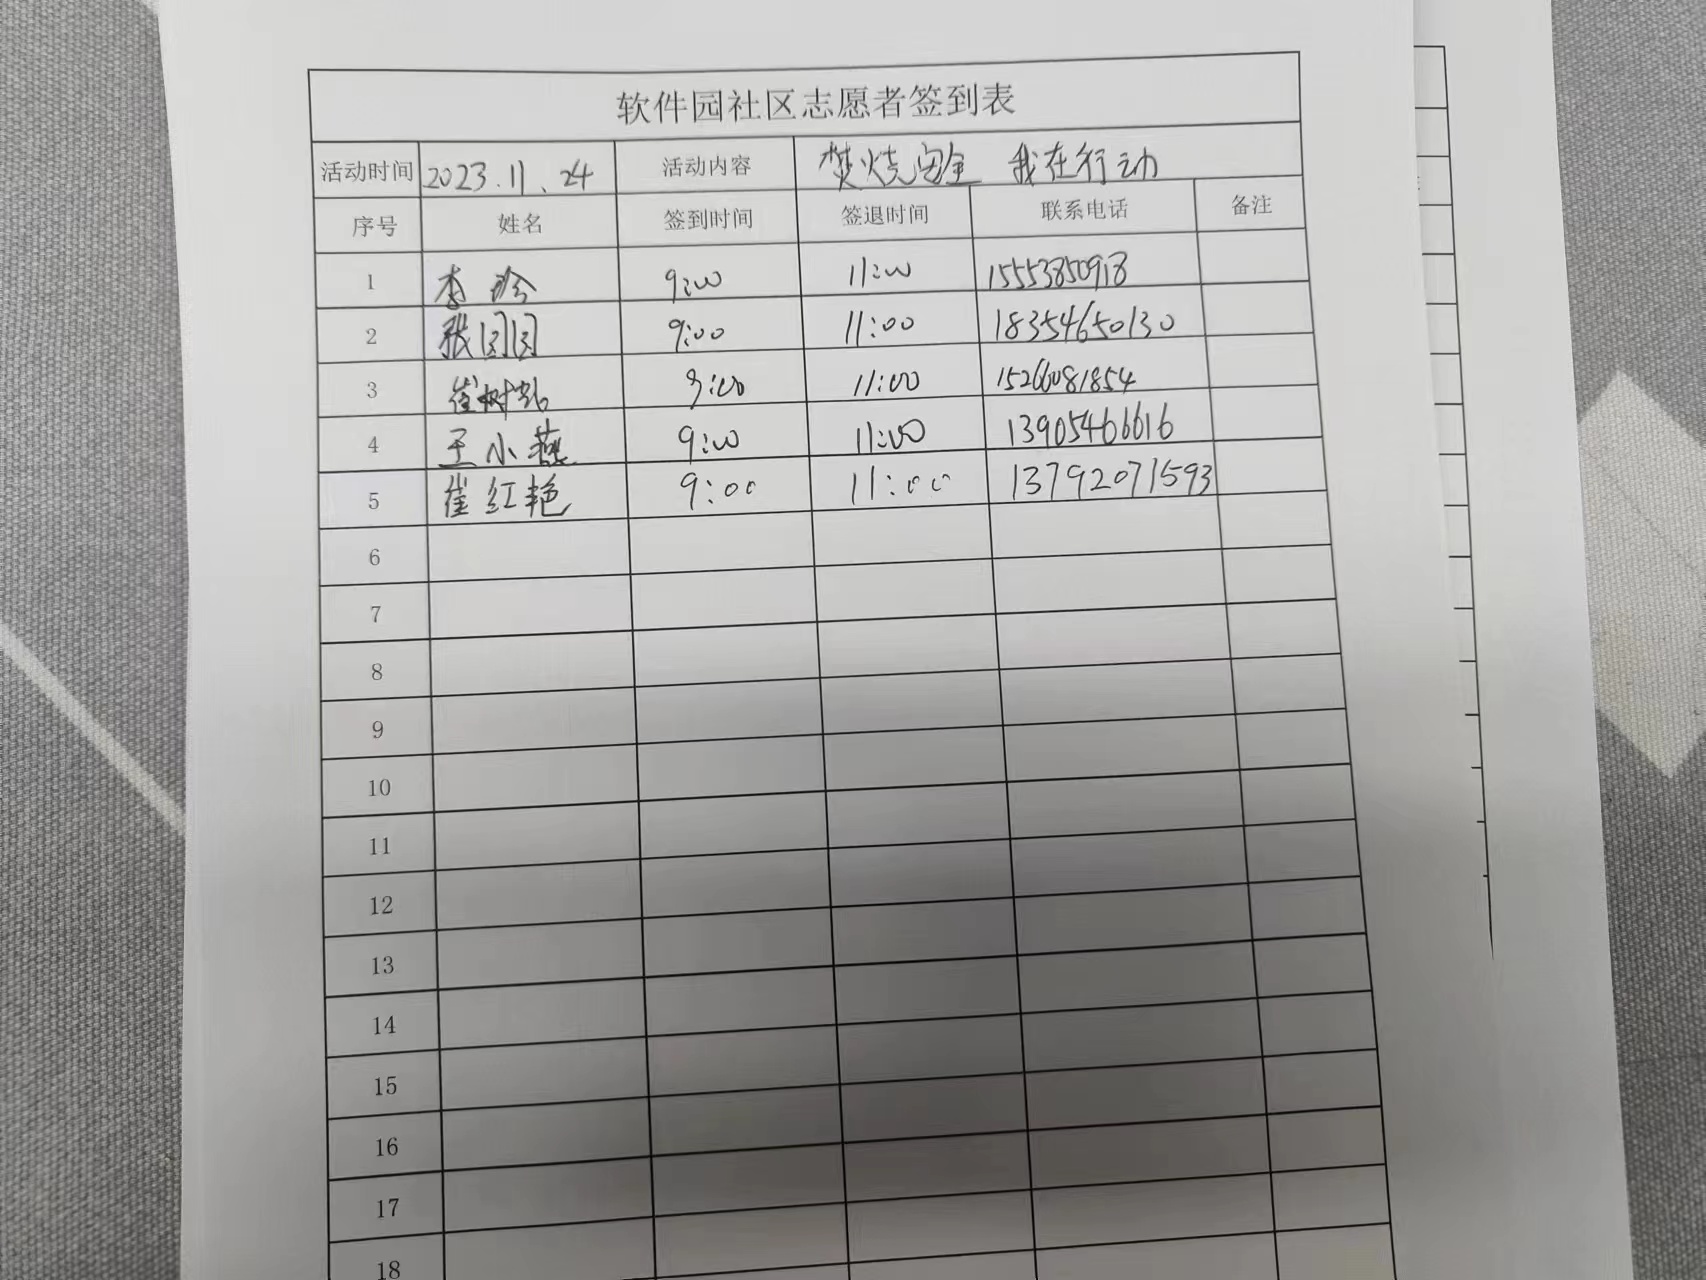 软件园社区志愿者签到表
活动时间 2023.11.24 活动内容 焚烧安全 我在行动
序号 姓名 签到时间 签退时间 联系电话 备注
1 李玲 9:00 11:00 15553850918
2 张园园 9:00 11:00 18354650130
3 崔树 9:00 11:00 15266081854
4 王小燕 9:00 11:00 13905466616
5 崔红艳 9:00 11:00 13792071593
6
7
8
9
10
11
12
13
14
15
16
17
18